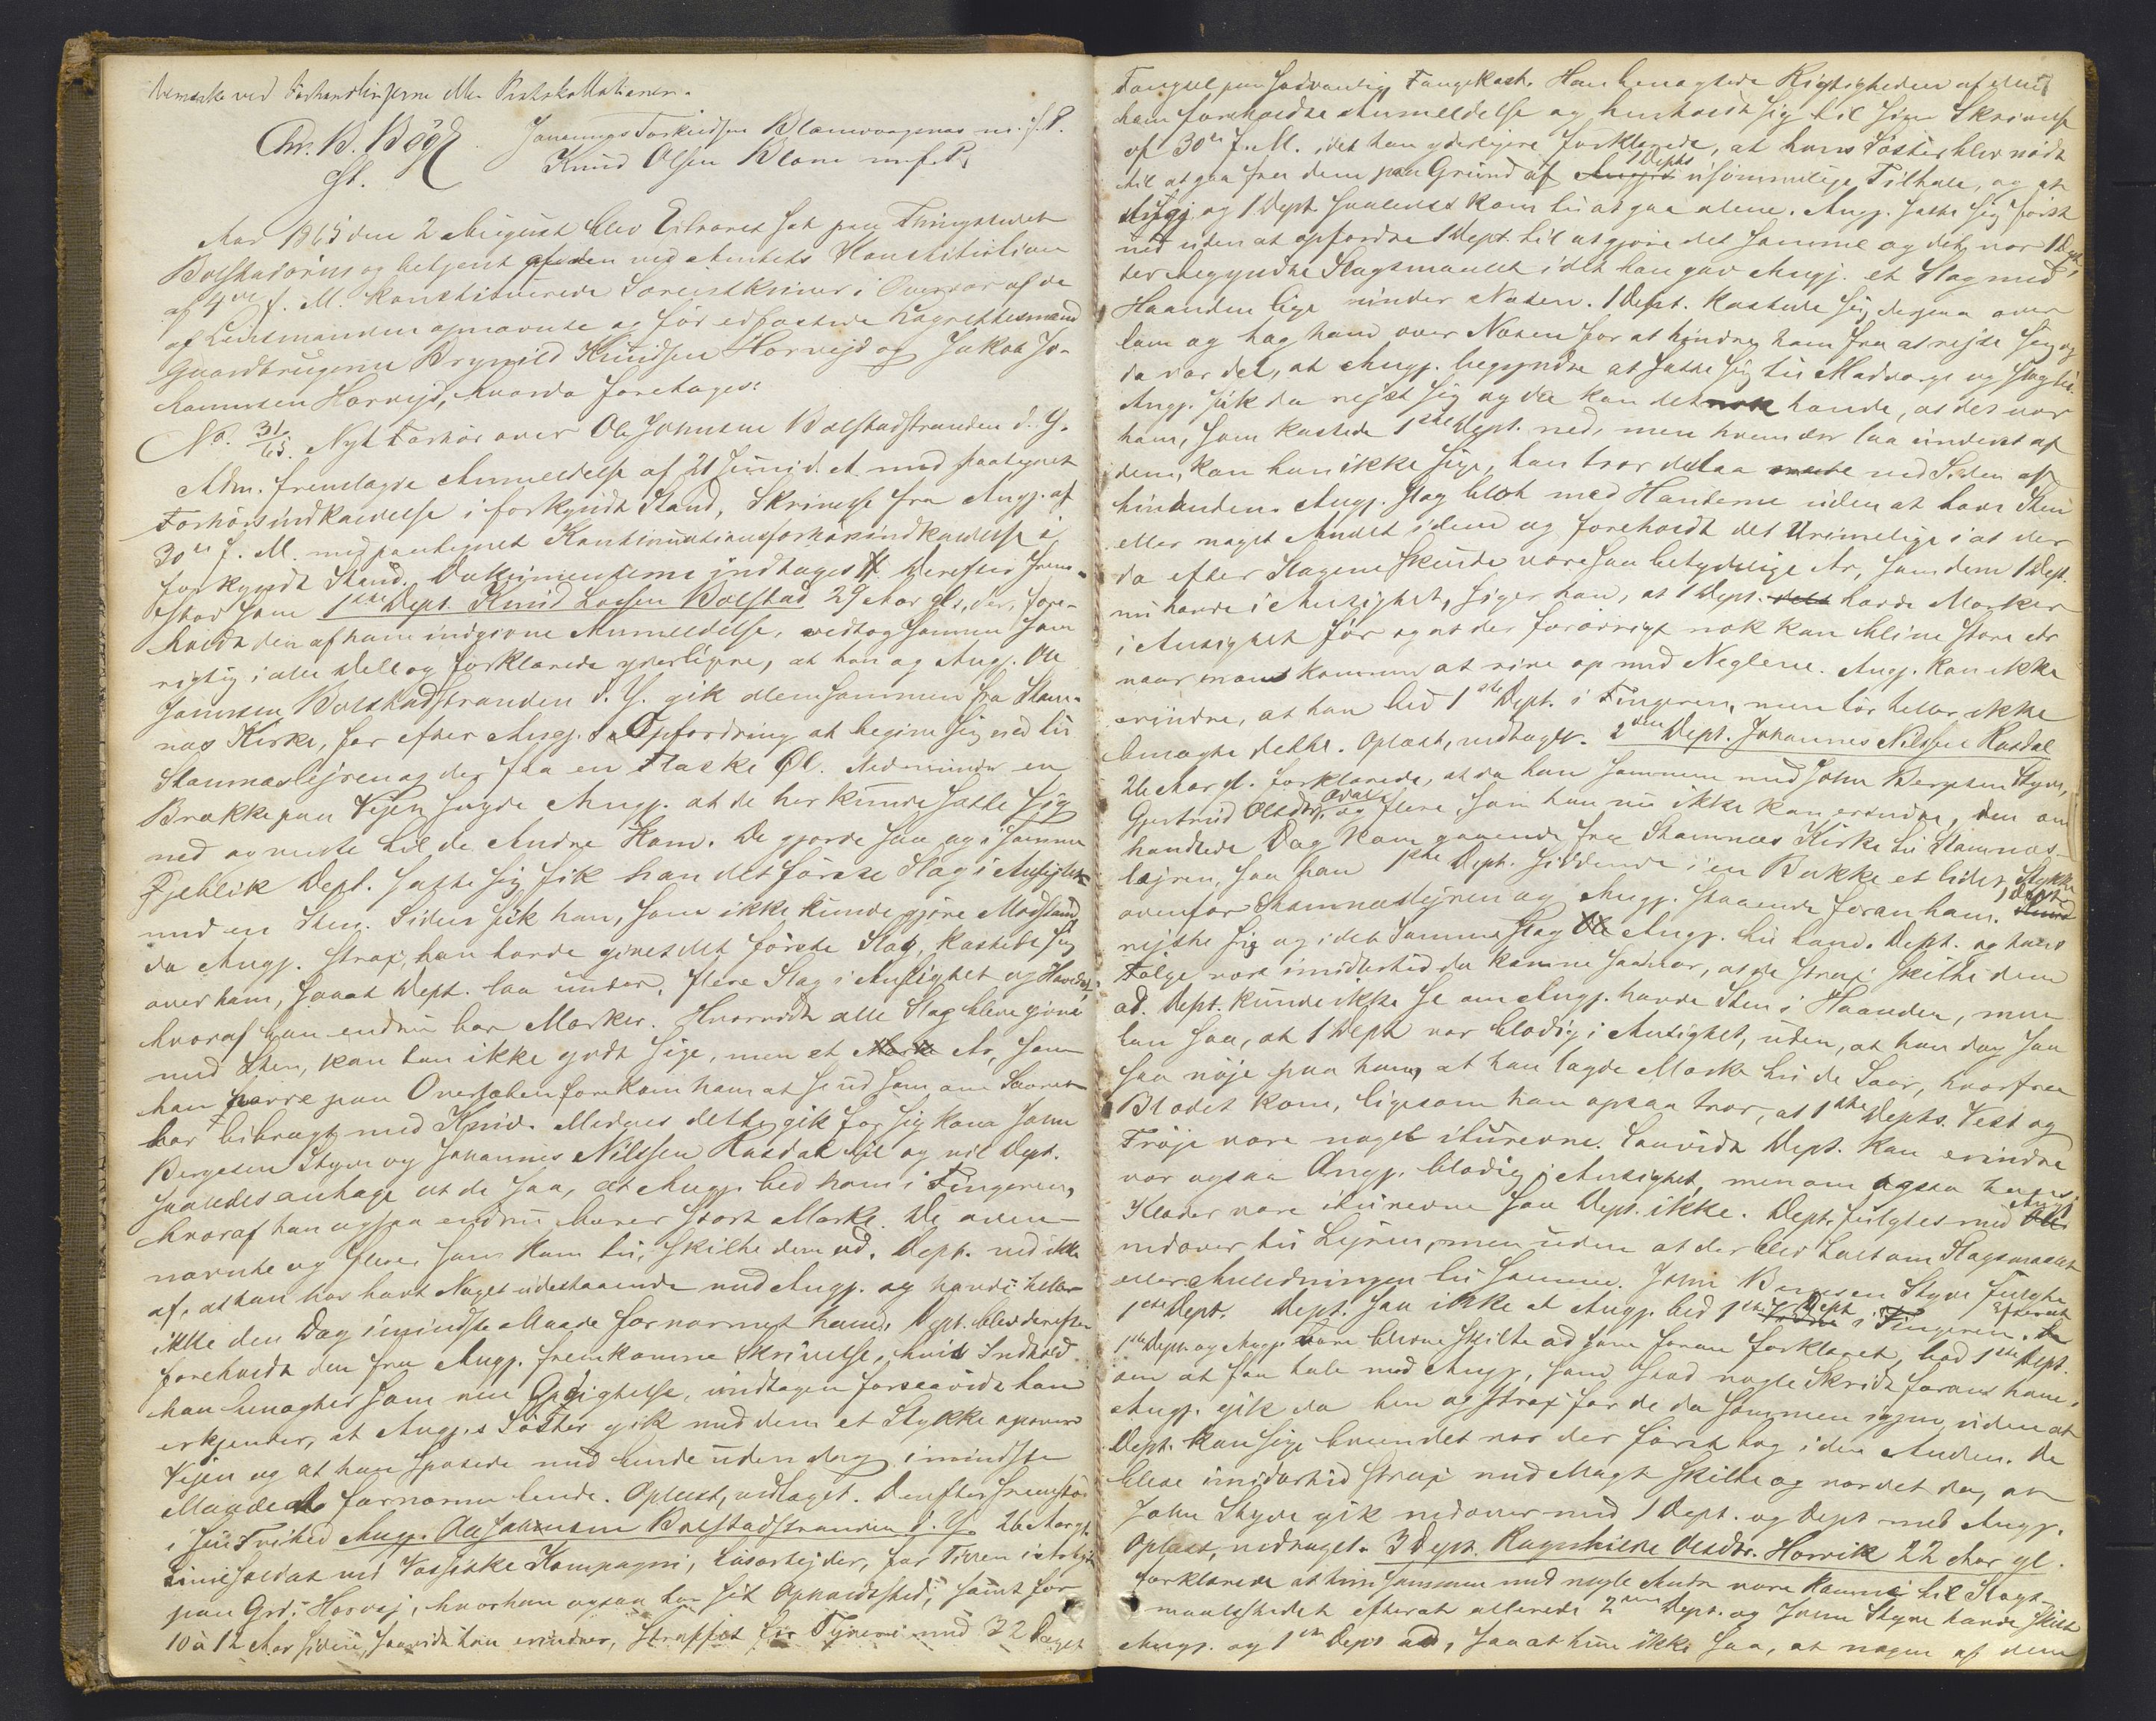 bemærke ved Forhandlingerne eller Protokollationen.
Chr. B. Bøgh Johannes Torkildsen Blomvaagenæs m. f. P.
cst. Knud Olsen Blom m. f. P.
Aar 1865 den 2 August blev Extraret sat paa Thingstedet
Bolstadøren og betjent af den ved Amtets Konstitution
af 4de f. M. konstituerede Sorenskriver i Overvær af de
af Lensmanden opnævnte og før edfæstede Lagrettesmænd
Gaardbrugerne Brynild Knudsen Horvejd og Jakob Jo-
hannesen Horvejd, hvorda foretoges:
No. 31/65. Nyt Forhør over Ole Johnsen Bolstadstranden d. Y.
Adm. fremlagde Anmeldelse af 21 Juni d. A. med paategnet
Forhørsindkaldelse i forkyndt Stand, Skrivelse fra Angj. af
30te f. M. med paategnet Kontinuationsforhørsindkaldelse i
forkyndt Stand. Dokumenterne indtages #. Derefter frem-
stod som 1ste Dept. Knud Larsen Bolstad 29 Aar gl., der, fore-
holdt den af ham indgivne Anmeldelse, vedtog samme som
rigtig i alle Dele og forklarede yderligere, at han og Angj. Ole
Johnsen Bolstadstranden d. Y. gik alene sammen fra Stam-
næs Kirke, for efter Angj.s Opfordring at begive sig ned til
Stamnæslejren og der faa en Flaske Øl. Nedenunder en
Brække paa Vejen sagde Angj. at de her kunde sætte sig
ned og vente til de Andre kom. De gjorde saa og i samme
Øjeblik Dept. satte sig fik han det første Slag i Ansigtet
med en Sten. Siden fik han, som ikke kunde gjøre Modstand
da Angj. strax, han havde givet det første Slag, kastede sig
over ham, saaat Dept. laa under, flere Slag i Ansigtet og Hovedet,
hvoraf han endnu har Mærker. Hvorvidt alle Slag bleve givne
med Sten, kan han ikke godt sige, men et Mærke Ar, som
han havde paa Overlæben forekom ham at se ud som om Saaret
var bibragt med Kniv. Medens dette gik for sig kom John
Bergesen Styve og Johannes Nilssen Rasdal til og vil Dept.
saaledes antage at de saa, at Angj. bed ham i Fingeren,
hvoraf han ogsaa endnu bærer stort Mærke. De oven-
nævnte og flere, som kom til, skilte dem ad. Dept. ved ikke
af, at han har havt Noget udestaaende med Angj. og havde heller
ikke den Dag i mindste Maade fornærmet ham. Dept. blev derefter
foreholdt den fra Angj. fremkomne Skrivelse, hvis Indhold
han benægter som ren Opdigtelse, undtagen forsaavidt han
erkjender, at Angj.s Søster gik med dem et Stykke opover
Vejen og at han spøgede med hende uden dog i mindste
Maade at fornærme hende. Oplæst, vedtaget. Derefter fremstod
i sin Frihed Angj. Ole Johnsen Bolstadstranden d. Y. 26 Aar gl.
Linjesoldat ved Vossiske Kompagni, Løsarbejder, for Tiden i Arbejde
paa Grd. Horvej, hvor han ogsaa har sit Opholdssted, samt for
10 à 12 Aar siden, saavidt han erindrer, straffet for Tyveri med 32 Dages
Fængsel paa sædvanlig Fangekost. Han benægtede Rigtigheden af den
ham foreholdte Anmeldelse og henholdt sig til sin Skrivelse
af 30te f. M., idet han yderligere forklarede, at hans Søster blev nødt
til at gaa fra dem paa Grund af Angj.s 1 Depts usømmelige Tiltale, og at
Angj. og 1 Dept. saaledes kom til at gaa alene. Angj. satte sig først
ned uden at opfordre 1 Dept. til at gjøre det samme og det var 1 Dept.,
der begyndte Slagsmaalet idet han gav Angj. et Slag med
Haanden lige under Næsen. 1 Dept. kastede sig dernæst over
ham og tog ham over Næsen for at hindre ham fra at rejse sig og
da var det, at Angj. begyndte at sætte sig til Modværge og slog til.
Angj. fik da rejst sig og da kan det nok hænde, at det var
ham, som kastede 1ste Dept. ned, men hvem der laa underst af
dem, kan han ikke sige, han tror de laa ved Siden af
hinanden. Angj. slog blot med Hænderne uden at have Sten
eller noget Andet i dem og foreholdt det Urimelige i at der
da efter Slagene skulde være saa betydelige Ar, som dem 1 Dept.
nu havde i Ansigtet, siger han, at 1 Dept. havde Mærker
i Ansigtet før og at der forøvrigt nok kan blive store Ar
naar man kommer at rive op med Neglene. Angj. kan ikke
erindre, at han bed 1ste Dept. i Fingeren, men tør heller ikke
benægte dette. Oplæst, vedtaget. 2den Dept. Johannes Nilssen Rasdal
26 Aar gl. forklarede, at da han sammen med John Bergesen Styve,
Gjertrud Olsdtr. og flere, som han nu ikke kan erindre, den om-
handlede Dag kom gaaende fra Stamnæs Kirke til Stamnæs-
lejren, saa han 1ste Dept. siddende i en Bakke et lidet Stykke
ovenfor Stamnæslejren og Angj. staaende foran ham. 1 Dept.
rejste sig og i det samme slog Angj. til ham. Dept. og hans
Følge vare imidlertid da komne saa nær, at de strax skilte dem
ad. Dept. kunde ikke se om Angj. havde Sten i Haanden, men
han saa, at 1 Dept var blodig i Ansigtet, uden, at han dog saa
saa nøje paa ham, at han lagde Mærke til de Saar, hvorfra
Blodet kom, ligesom han ogsaa tror, at 1ste Depts. Vest og
Trøje vare noget iturevne. Saavidt Dept. kan erindre
var ogsaa Angj. blodig i Ansigtet, men om ogsaa hans
Klæder vare iturevne saa Dept. ikke. Dept. fulgtes med Angj.
nedover til Lejren, men uden at der blev talt om Slagsmaalet
eller Anledningen til samme. John Bergesen Styve fulgte
1ste Dept. Dept. saa ikke at Angj. bed 1ste Dept i Fingeren. Efterat
1ste Dept. og Angj. vare blevne skilte ad som foran forklaret, bad 1ste Dept.
om at faa tale med Angj., som stod nogle Skridt foran ham.
Angj. gik da hen og strax for de da sammen igjen, uden at
Dept. kan sige hvem det var der først tog i den Anden. De
bleve imidlertid strax med Magt skilte og var det da, at
John Styve gik nedover med 1 Dept. og Dept med Angj.
Oplæst, vedtaget. 3 Dept. Ragnhilde Olsdtr. Horvik 22 Aar gl.
forklarede at hun sammen med nogle Andre vare komne til Slags-
maalsstedet efterat allerede 2den Dept. og John Styve havde skilt
Angj. og 1ste Dept ad, saa at hun ikke saa, at nogen af dem